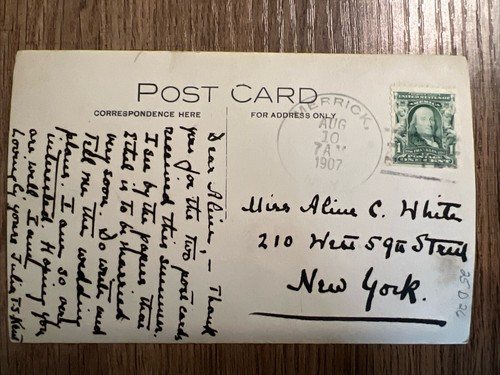 POST CARD
CORRESPONDENCE HERE
FOR ADDRESS ONLY
MERRICK,
AUG
10
7 A.M
1907
1
Miss Aline C. White
210 West 59th Street
New York.
Dear Aline, – Thank
you for the two post cards
received this summer.
I see by the papers that
Ethel is to be married
very soon. Do write and
Tell me the wedding
plans. I am so very
interested. Hoping you
are well I am
Lovingly yours Julia